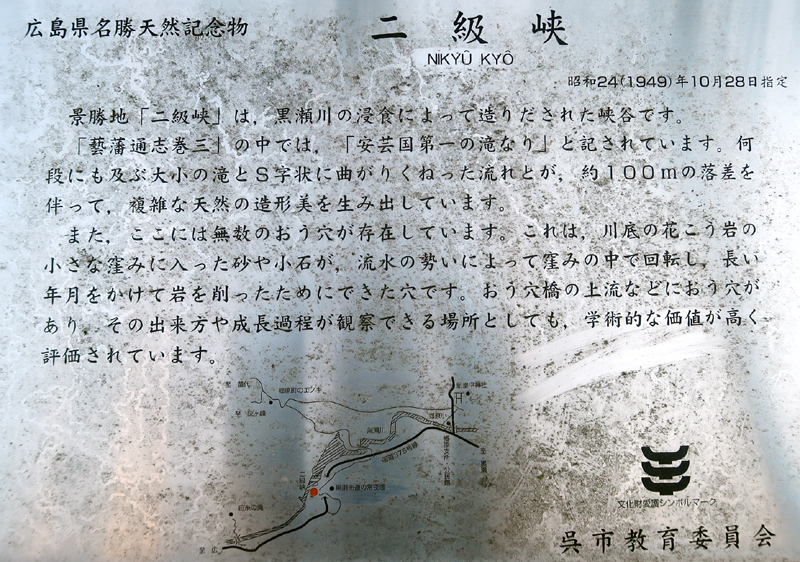 広島県名勝天然記念物
二級峡
NIKYŪ KYŌ
昭和24(1949)年10月28日指定
景勝地「二級峡」は，黒瀬川の浸食によって造りだされた峡谷です。
「藝藩通志巻三」の中では，「安芸国第一の滝なり」と記されています。何
段にも及ぶ大小の滝とS字状に曲がりくねった流れとが，約100mの落差を
伴って，複雑な天然の造形美を生み出しています。
また，ここには無数のおう穴が存在しています。これは，川底の花こう岩の
小さな窪みに入った砂や小石が，流水の勢いによって窪みの中で回転し，長い
年月をかけて岩を削ったためにできた穴です。おう穴橋の上流などにおう穴が
あり，その出来方や成長過程が観察できる場所としても，学術的な価値が高く
評価されています。
至 郷原
二級峡
至 広
文化財愛護シンボルマーク
呉市教育委員会